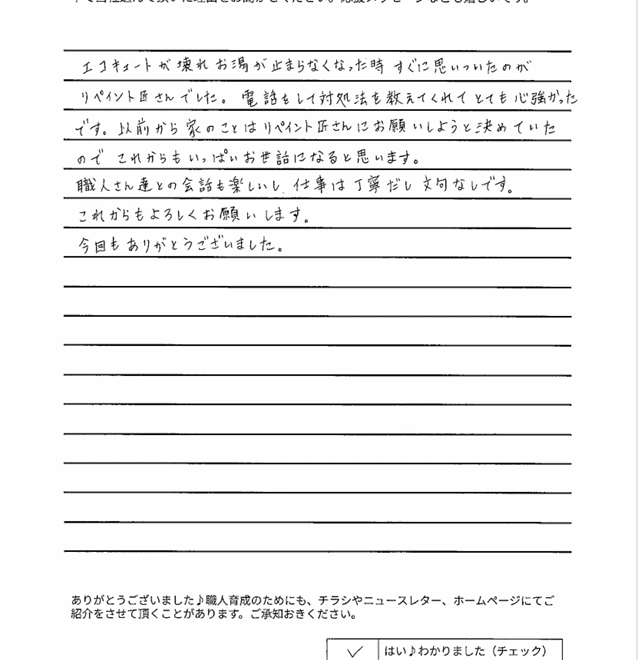 エコキュートが壊れお湯が止まらなくなった時すぐに思いついたのが
リペイント匠さんでした。電話をして対処法を教えてくれてとても心強かった
です。以前から家のことはリペイント匠さんにお願いしようと決めていた
ので これからもいっぱいお世話になると思います。
職人さん達との会話も楽しいし、仕事は丁寧だし文句なしです。
これからもよろしくお願いします。
今回もありがとうございました。
ありがとうございました♪職人育成のためにも、チラシやニュースレター、ホームページにてご
紹介をさせて頂くことがあります。ご承知おきください。
✓ はい♪わかりました（チェック）